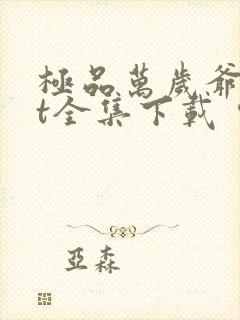 極品萬歲爺
t全集下載
亞森